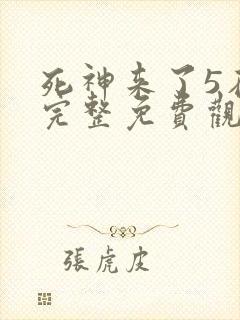 死神来了5
完整免費觀
張虎皮